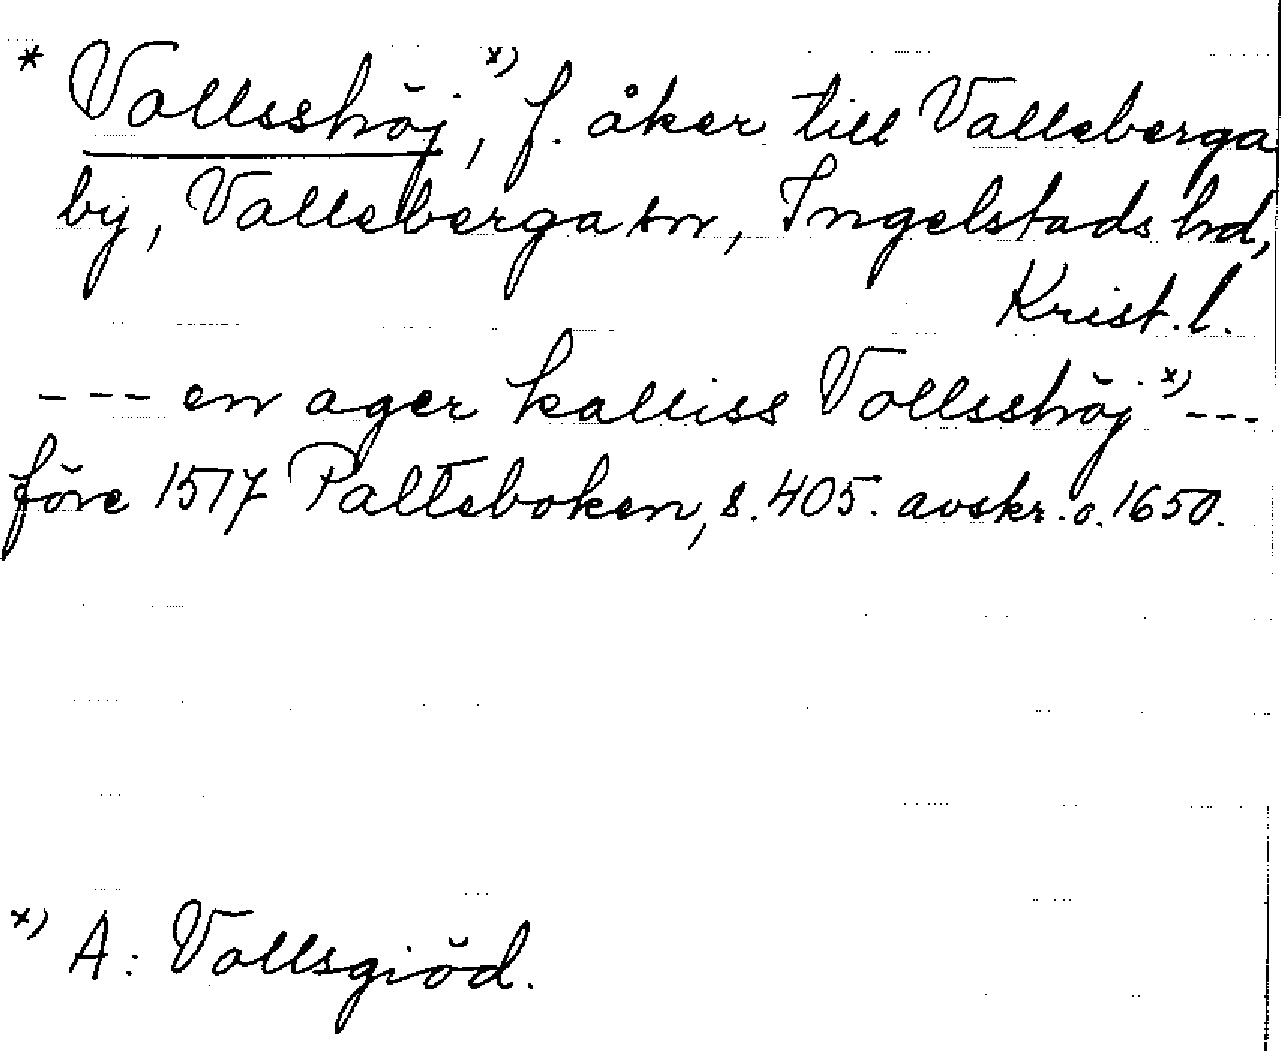 * Vollsshöj,ˣ⁾ f. åker till Valleberga
by, Valleberga sn, Ingelstads hd,
Krist. l.
--- en ager kalliss Vollsshöjˣ⁾ ---
före 1517 Palteboken, s. 405. avskr. o. 1650.
ˣ⁾ A: Vollsgiöd.